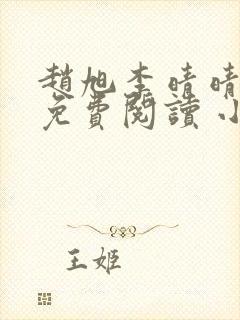 趙旭李晴晴
免費閱讀小
王姬